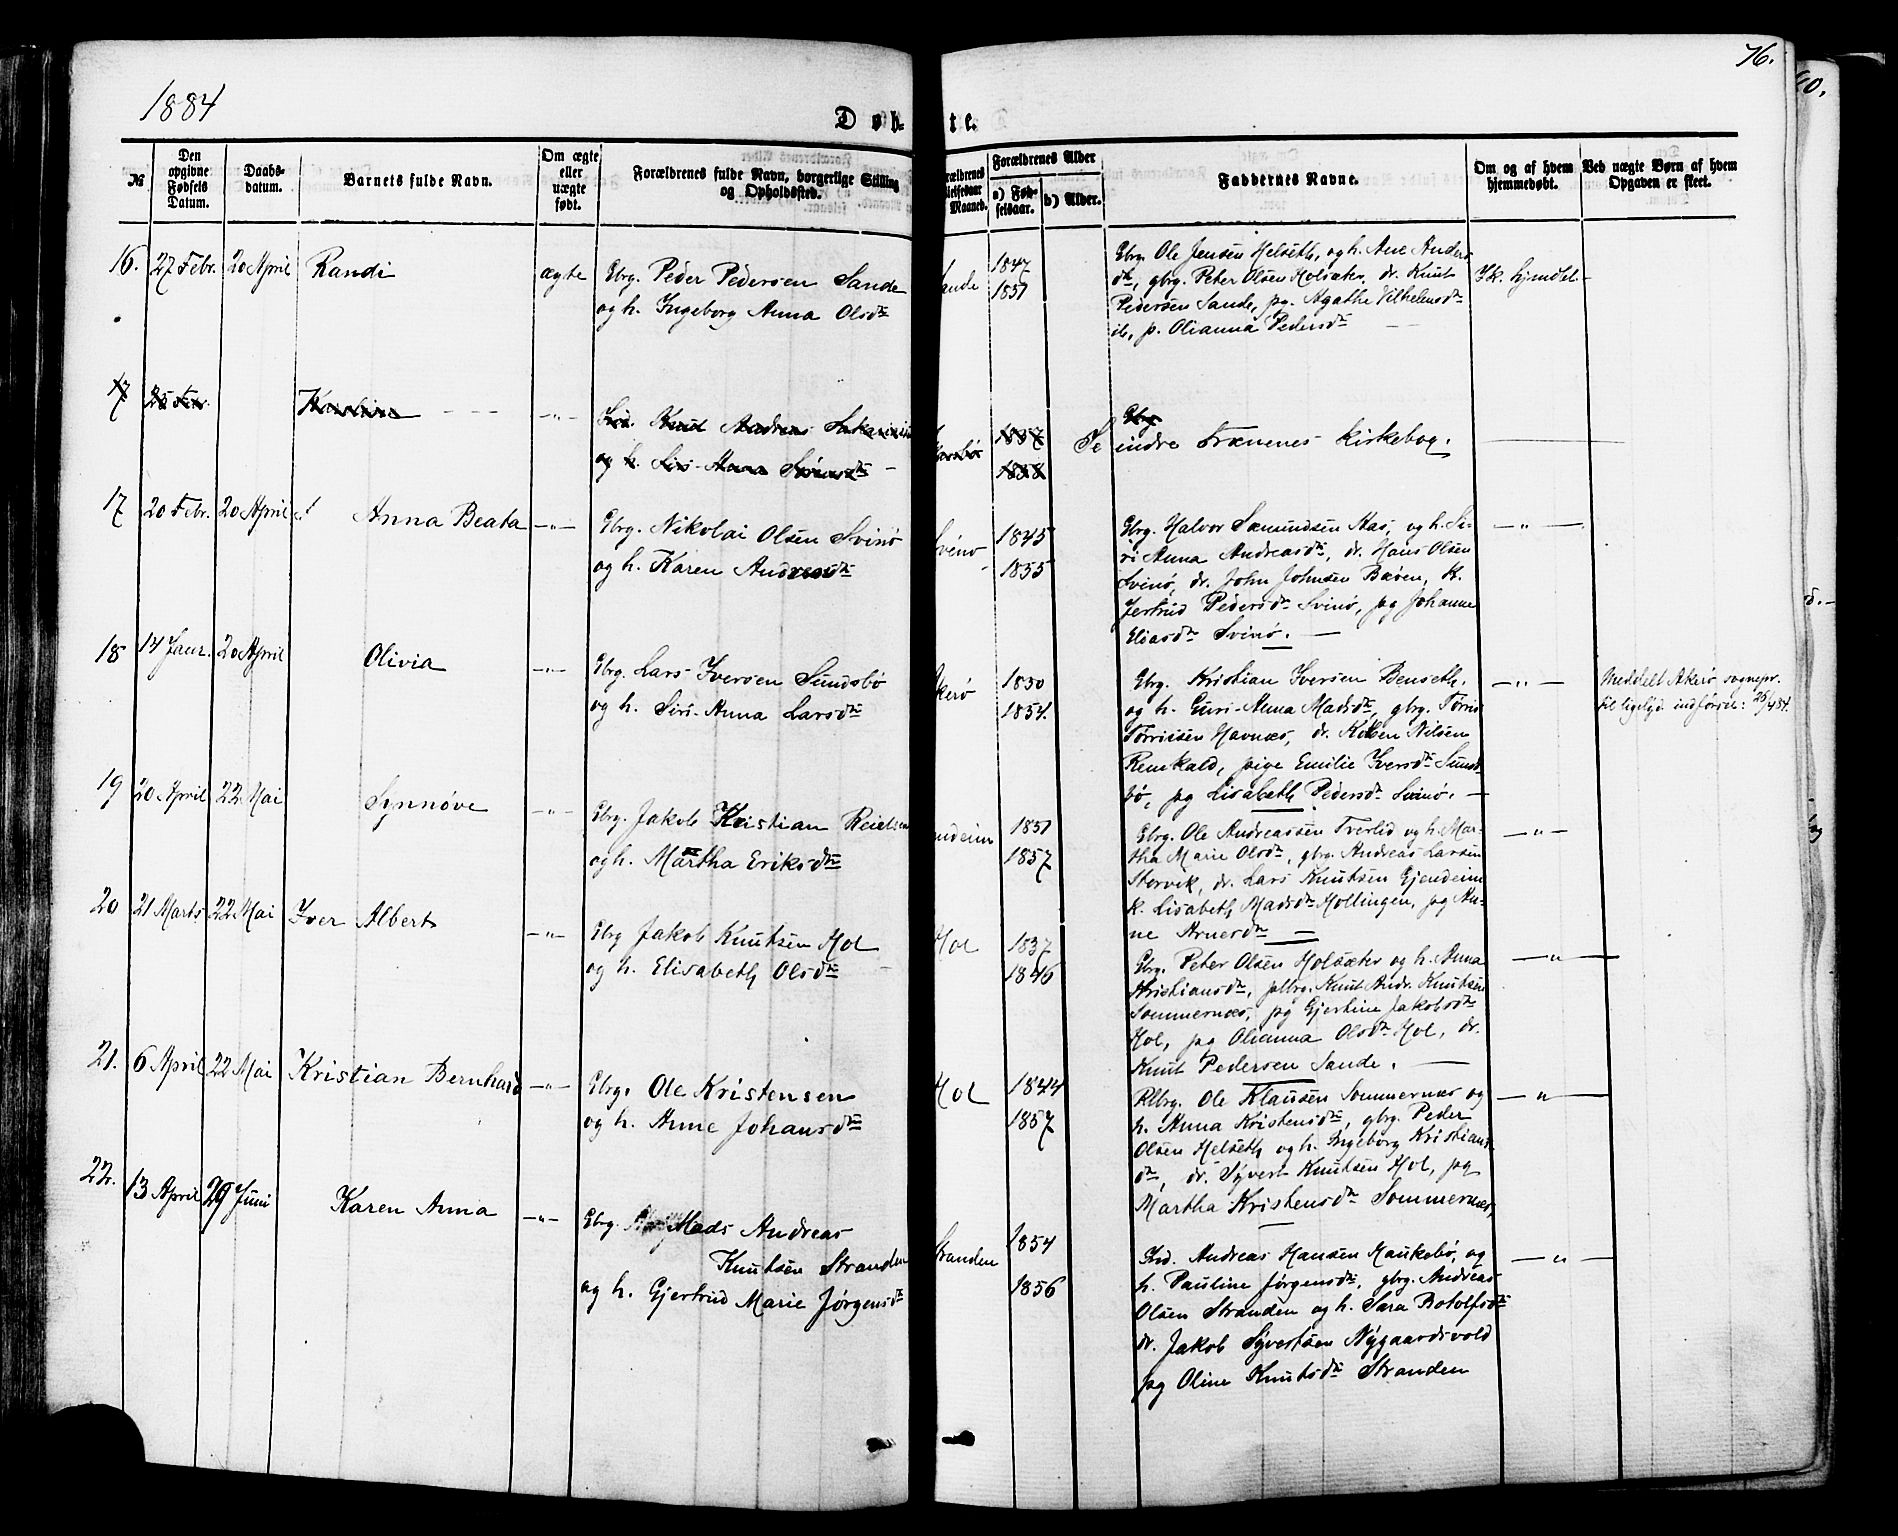 76.
1884
Døb-te.
№
Den opgivne Fødsels Datum.
Daabs-datum.
Barnets fulde Navn.
Om ægte eller uægte født.
Forældrenes fulde Navn, borgerlige Stilling og Opholdssted.
Forældrenes Alder
a) Fød-selsaar.
b) Alder.
Faddernes Navne.
Om og af hvem hjemmedøbt.
Ved uægte Børn af hvem Opgaven er skeet.
16. 27 Febr. 20 April Randi ægte Gbrg. Peder Pedersen Sande
og h. Ingeborg Anna Olsdtr
Sande 1847
1851
Gbrg. Ole Jensen Helseth, og h. Ane Anders
dtr, gbrg. Peter Olsen Holsæter, dr. Knut
Pedersen Sande, pg. Agathe Vilhelmsdtr
ib, p. Olianna Pedersdtr
Ik. hjmdbt.
17 25 Febr. Knut Andreas
og h. Siri Anna
1837
1838
Gbrg
Se indre Frænenes Kirkebog.
17 20 Febr. 20 April Anna Beata -"- Gbrg. Nikolai Olsen Svinø
og h. Karen Andreasdtr
Svinø 1845
1855
Gbrg. Halvor Sæmundsen Aas, og h. Si-
ri Anna Andreasdtr, dr. Hans Olsen
Svinø, dr. John Johnsen Bæven, K.
Jertrud Pedersdtr Svinø, pg Johanne
Eliasdtr Svinø.
-"-
18 14 Janr. 20 April Olivia -"- Gbrg. Lars Iversen Sundsbø
og h. Siri-Anna Larsdtr
Akerø 1850
1854.
Gbrg. Kristian Iversen Benseth,
og h. Guri-Anna Madsdtr, gbrg. Torris
Torrissen Havnæs, dr. Nilsen
pige Emilie Iversdtr Sunds
bø, pg Lisabeth Pedersdtr Svinø.
-"-
Meddelt Akerø sognepr.
til ligelyd. indførsel: 26/4 84.
19 20 April 22 Mai Synnøve -"- Gbrg. Jakob Kristian
og h. Martha Eriksdtr
1851
1857
Gbrg. Ole Andreassen Tverlid og h. Mar-
tha Marie Olsdtr, gbrg. Andreas Larsen
Storvik, dr. Lars Knutsen Gjendeim
K. Lisabeth Madsdtr Mollingen, pg An-
ne Arnesdtr
-"-
20 21 Marts 22 Mai Iver Albert -"- Gbrg Jakob Knutsen Hol
og h. Elisabeth Olsdtr
Hol 1837
1846
Gbrg. Peter Olsen Holsæter og h. Anna
Kristiansdtr, Knut Andr. Knutsen
Sommernæs, pg Gjertine Jakobsdtr
Hol, pg Olianna Olsdtr Hol, dr.
Knut Pedersen Sande.
-"-
21. 6 April 22 Mai Kristian Bernhard -"- Gbrg. Ole Kristensen
og h. Anne Johansdtr
Hol 1844
1857
Ole Klausen Sommernæs og
h. Anna Kristensdtr, gbrg. Peder
Olsen Helseth og h. Ingeborg Kristians
dtr, dr. Syvert Knutsen Hol, pg
Martha Kristensdtr Sommernæs,
-"-
22. 13 April 29 Juni Karen Anna -"- Gbrg. Mads Andreas
Knutsen Stranden
og h. Gjertrud Marie Jørgensdtr
Stranden 1854
1856
Ind. Andreas Hansen Haukebø, og
h. Pauline Jørgensdtr, gbrg. Andreas
Olsen Stranden og h. Sara Botolfsdtr
dr. Jakob Syvertsen Nygaardsvold
pg Oline Knutsdtr Stranden
-"-